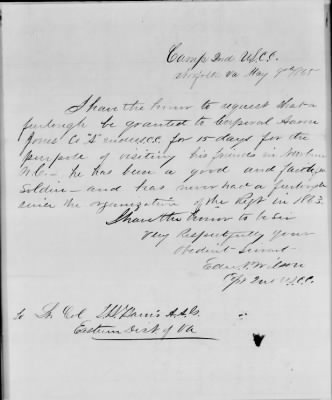 Camp 2nd U.S.C.C.
Norfolk Va May 9th 1865
I have the honor to request that a
furlough be granted to Corporal Aaron
Jones Co "L" 2nd U.S.C.C. for 15 days for the
purpose of visiting his friends in
N.C. – he has been a good and faithful
Soldier – and has never had a furlough
since the organization of the Regt in 1863.
I have the honor to be Sir
Very Respectfully your
Obedient Servant
Edw. P. Wilson
Cpt 2nd U.S.C.C.
to Lt. Col A.A.G.
Eastern Dist of Va